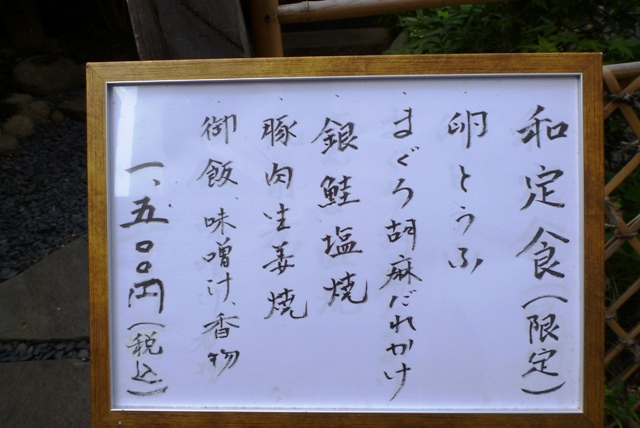 和定食（限定）
卵とうふ
・まぐろ胡麻だれかけ
・銀鮭塩焼
・豚肉生姜焼
・御飯、味噌汁、香物
一、五〇〇円（税込）